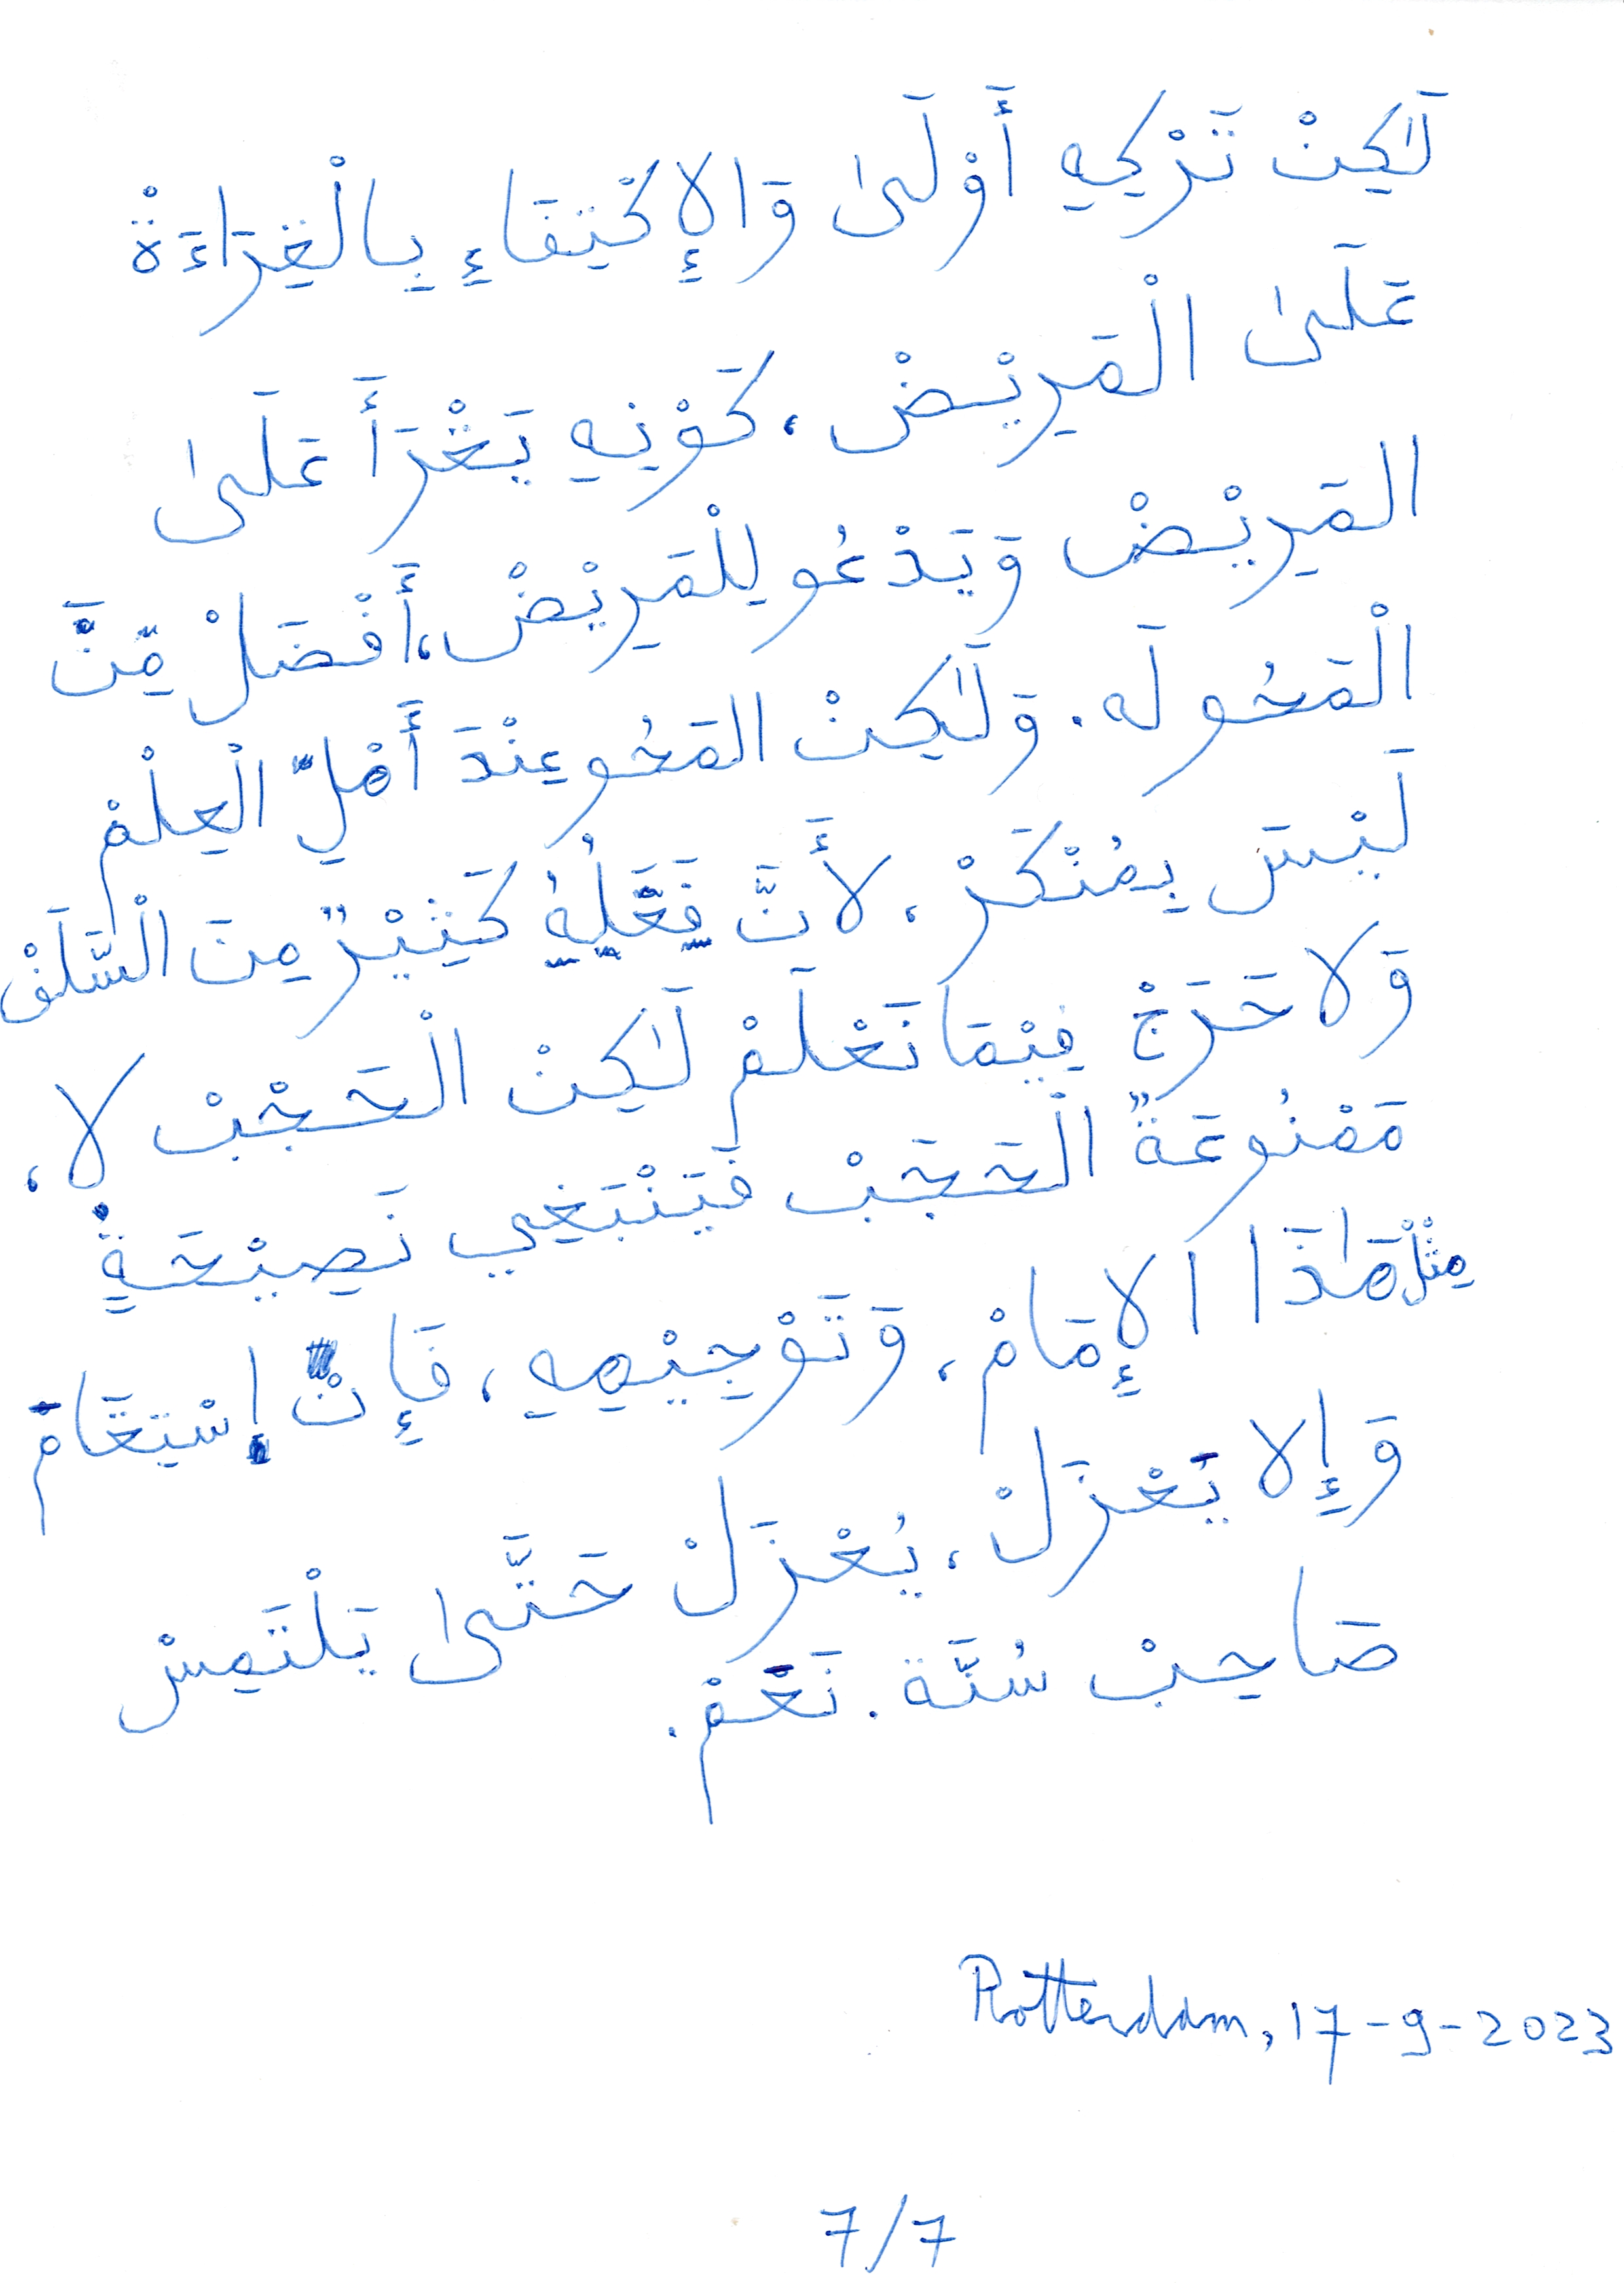 لَٰكِنْ تَرْكِهِ أَوْلَىٰ وَالإِكْتِفَاءِ بِالْقِرَاءَةْ
عَلَىٰ الْمَرِيْضْ، كَوْنِهِ يَقْرَأَ عَلَىٰ
المَرِيْضْ وَيَدْعُو لِلْمَرِيْضْ، أَفْضَلْ مِّنَّ
الْمَحُو لَه. وَلَٰكِنْ المَحُو عِنْدَ أَهْلِّ الْعِلْمْ
لَيْسَ بِمُنْكَرْ، لأَنَّ فَعَّلِهُ كَثِيْرٌ مِنَ الْسَّلَفْ
وَلا حَرَجْ فِيْمَا نَعْلَمْ لَٰكِنْ الْحَجْبْ لا،
مَمْنُوعَةٌ الْحَجَبْ فَيَنْبَغِي نَصِيْحَةِ
مِثْلْ هَٰذَا الإِمَامْ، وَتَوْجِيْهِهِ، فَإِنْ إِسْتِقَامْ
وَإِلا يَعْزَلْ، يُعْزَلْ حَتَّىٰ يَلْتَمِسْ
صَاحِبْ سُنَّة. نَعْمْ.
Rotterdam, 17-9-2023
7/7